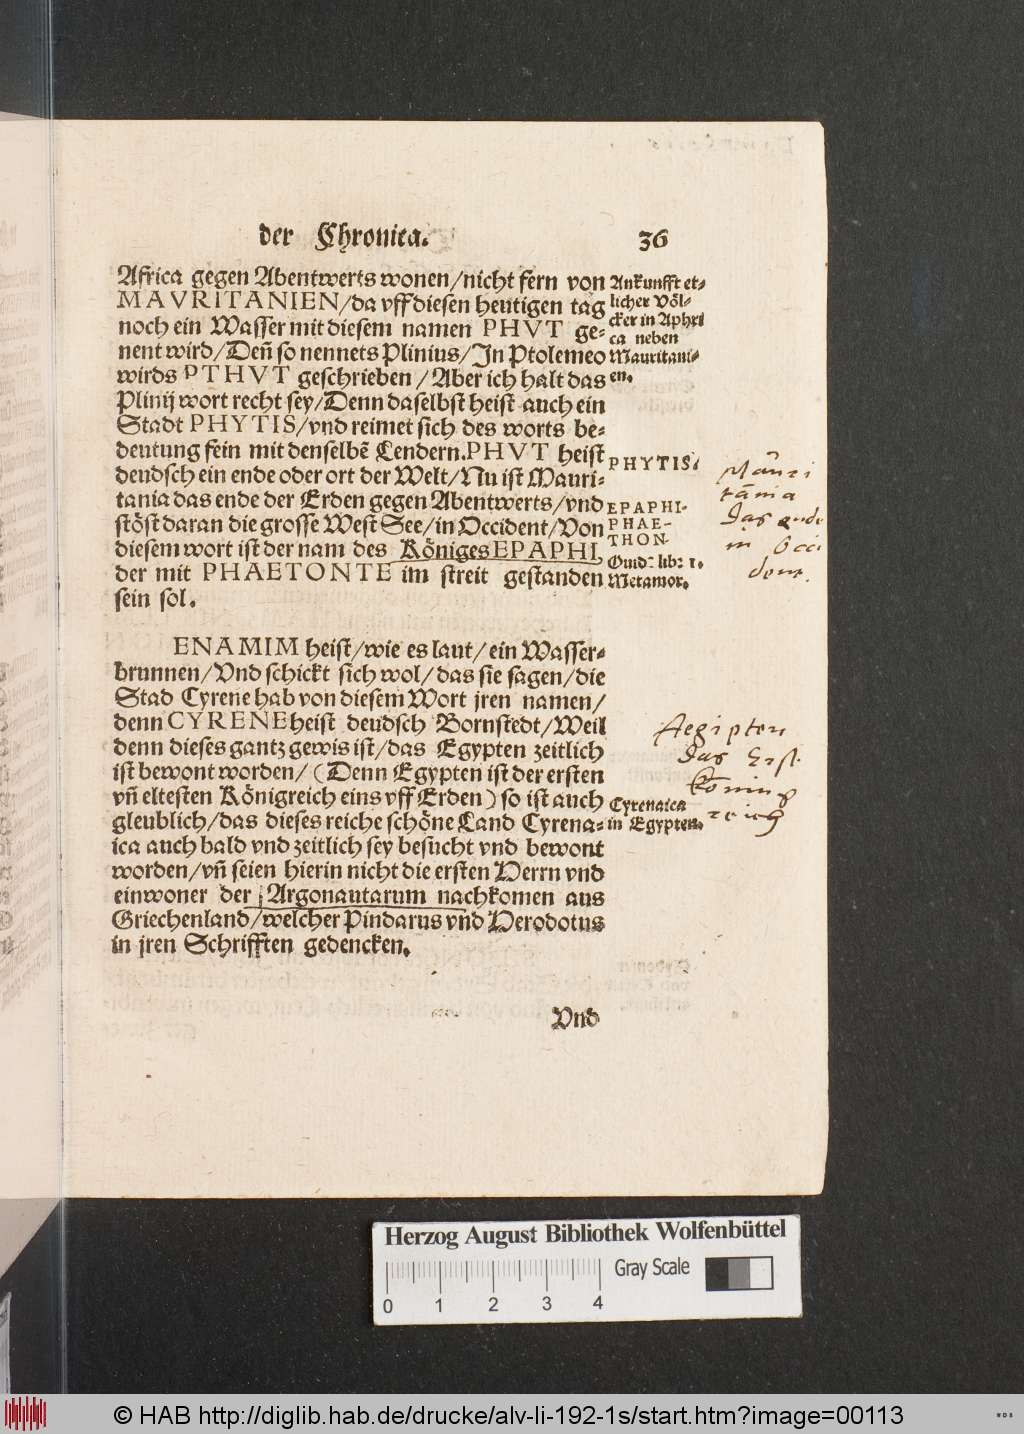 der Chronica. 36
Africa gegen Abentwerts wonen/nicht fern von
MAVRITANIEN/da vff diesen heutigen tag
noch ein Wasser mit diesem namen PHVT ge-
nent wird/Deñ so nennets Plinius/In Ptolemeo
wirds PTHVT geschrieben/Aber ich halt das
Plinij wort recht sey/Denn daselbst heist auch ein
Stadt PHYTIS/vnd reimet sich des worts be-
deutung fein mit denselbẽ Lendern.PHVT heist
deudsch ein ende oder ort der Welt/Nu ist Mauri-
tania das ende der Erden gegen Abentwerts/vnd
stöst daran die grosse West See/in Occident/Von
diesem wort ist der nam des Königes EPAPHI,
der mit PHAETONTE im streit gestanden
sein sol.
Ankunfft et-
licher Völ-
cker in Aphri
ca neben
Mauritani-
en.
PHYTIS.
EPAPHI-
PHAE-
THON.
Ouid: lib: 1.
Metamor.
Mauri
tania
das ende
in Occi
dent.
ENAMIM heist/wie es laut/ein Wasser-
brunnen/Vnd schickt sich wol/das sie sagen/die
Stad Cyrene hab von diesem Wort jren namen/
denn CYRENE heist deudsch Bornstedt/Weil
denn dieses gantz gewis ist/das Egypten zeitlich
ist bewont worden/(Denn Egypten ist der ersten
vñ eltesten Königreich eins vff Erden) so ist auch
gleublich/das dieses reiche schöne Land Cyrena-
ica auch bald vnd zeitlich sey besucht vnd bewont
worden/vñ seien hierin nicht die ersten Herrn vnd
einwoner der Argonautarum nachkomen aus
Griechenland/welcher Pindarus vnd Herodotus
in jren Schrifften gedencken.
Aegipten
das Erst
König
reich
Cyrenaica
in Egypten.
Vnd
Herzog August Bibliothek Wolfenbüttel
Gray Scale
0 1 2 3 4
© HAB http://diglib.hab.de/drucke/alv-li-192-1s/start.htm?image=00113